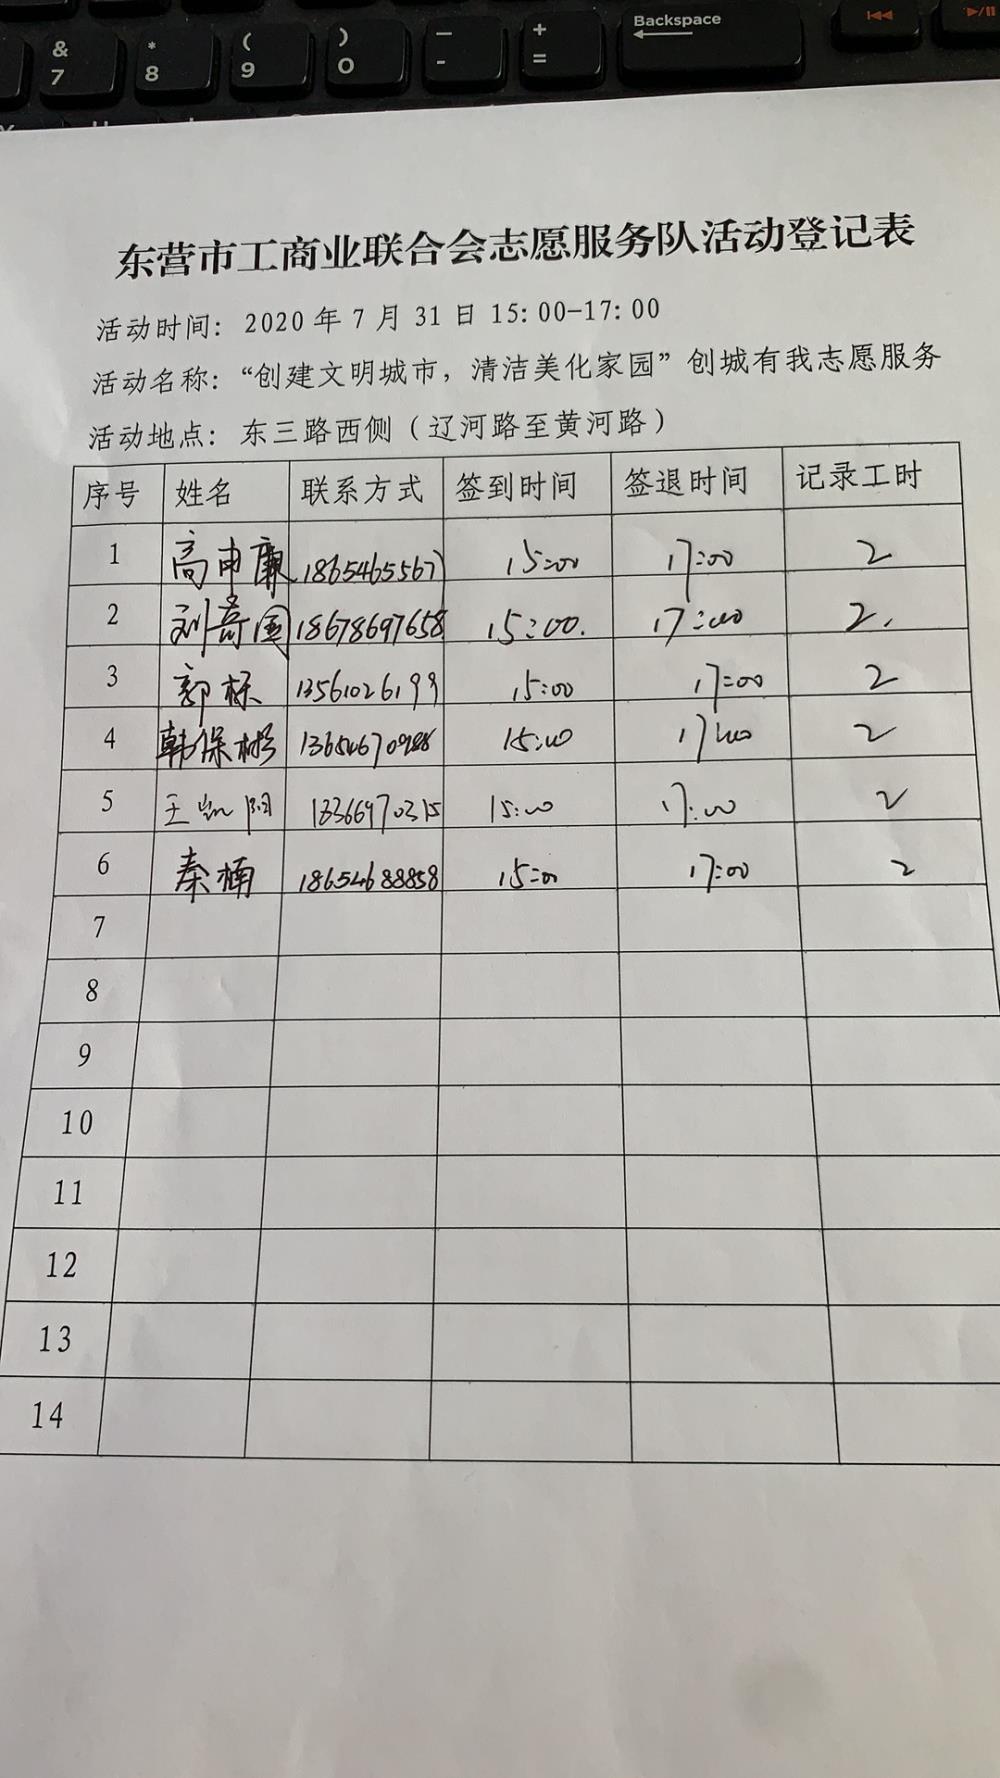 & 7
* 8
( 9
) 0
— -
+ =
Backspace
东营市工商业联合会志愿服务队活动登记表
活动时间：2020 年 7 月 31 日 15：00-17：00
活动名称：“创建文明城市，清洁美化家园”创城有我志愿服务
活动地点：东三路西侧（辽河路至黄河路）
序号 姓名 联系方式 签到时间 签退时间 记录工时
1 高申康 18654655671 15:00 17:00 2
2 刘奇国 18678697658 15:00. 17:00 2.
3 郭栋 13561026199 15:00 17:00 2
4 韩保彬 13654670988 15:00 17:00 2
5 王凯阳 13366970315 15:00 17:00 2
6 秦楠 18654688858 15:00 17:00 2
7
8
9
10
11
12
13
14